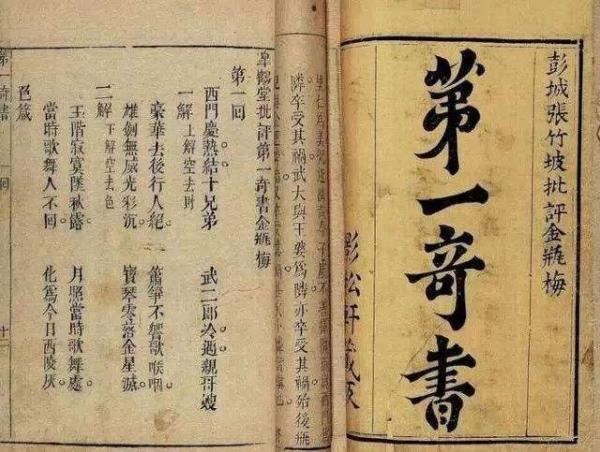 彭城張竹坡批評金瓶梅
第一奇書
影松軒藏板
隣卒受其禍武大與王婆爲隣亦卒受其禍殆後瓶
皐鶴堂批評第一奇書金瓶梅
第一回
西門慶熱結十兄弟 武二郎冷遇親哥嫂
一解 上解空去財
豪華去後行人絕 簫箏不響歌喉咽
雄劍無威光彩沉 寶琴零落金星滅
二解 下解空去色
玉階寂寞墜秋露 月照當時歌舞處
當時歌舞人不回 化爲今日西陵灰
第一奇書